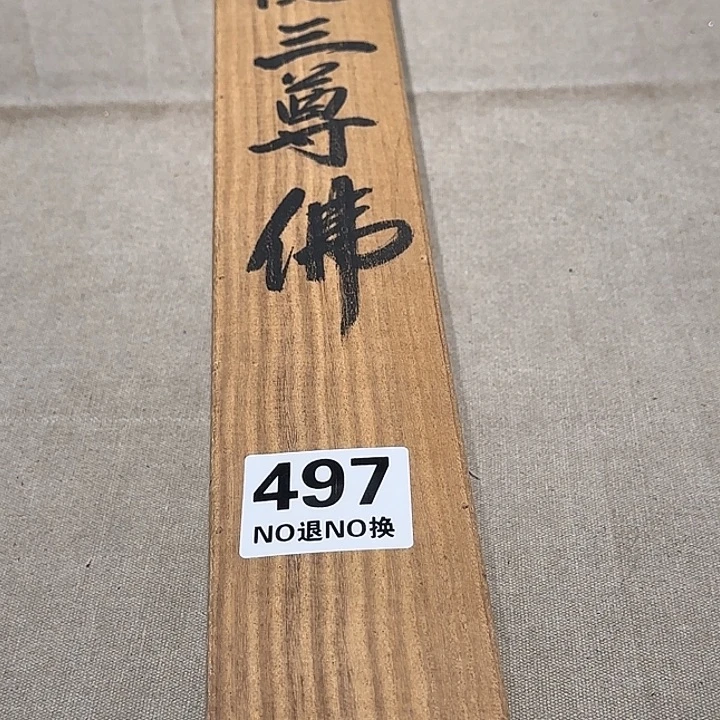 三尊佛
497
NO退NO换